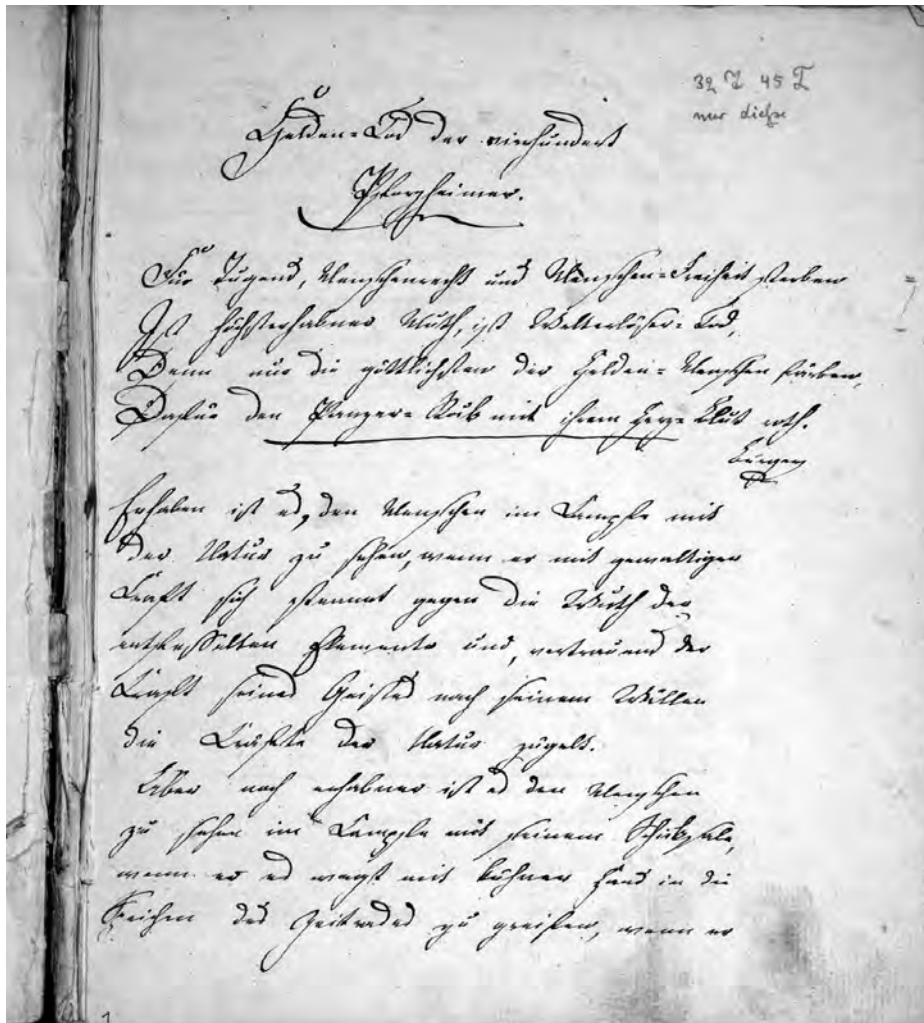 Helden=Tod der vierhundert
Pforzheimer.
Für Tugend, Menschenrecht und Menschen=Freiheit sterben
Ist höchsterhabner Muth, ist Welterlöser=Tod,
Denn nur die göttlichsten der Helden=Menschen färben
Dafür den Panzer=Rock mit ihrem Herz=Blut roth.
Bürger
Erhaben ist es, den Menschen im Kampfe mit
der Natur zu sehen, wenn er mit gewaltiger
Kraft sich stemmt gegen die Wuth der
entfesselten Elemente und, vertrauend der
Kraft seines Geistes nach seinem Willen
die Kräfte der Natur zügelt.
Aber noch erhabner ist es den Menschen
zu sehen im Kampfe mit seinem Schiksale,
wenn er es wagt mit kühner Hand in die
Speichen des Zeitrades zu greifen, wenn er